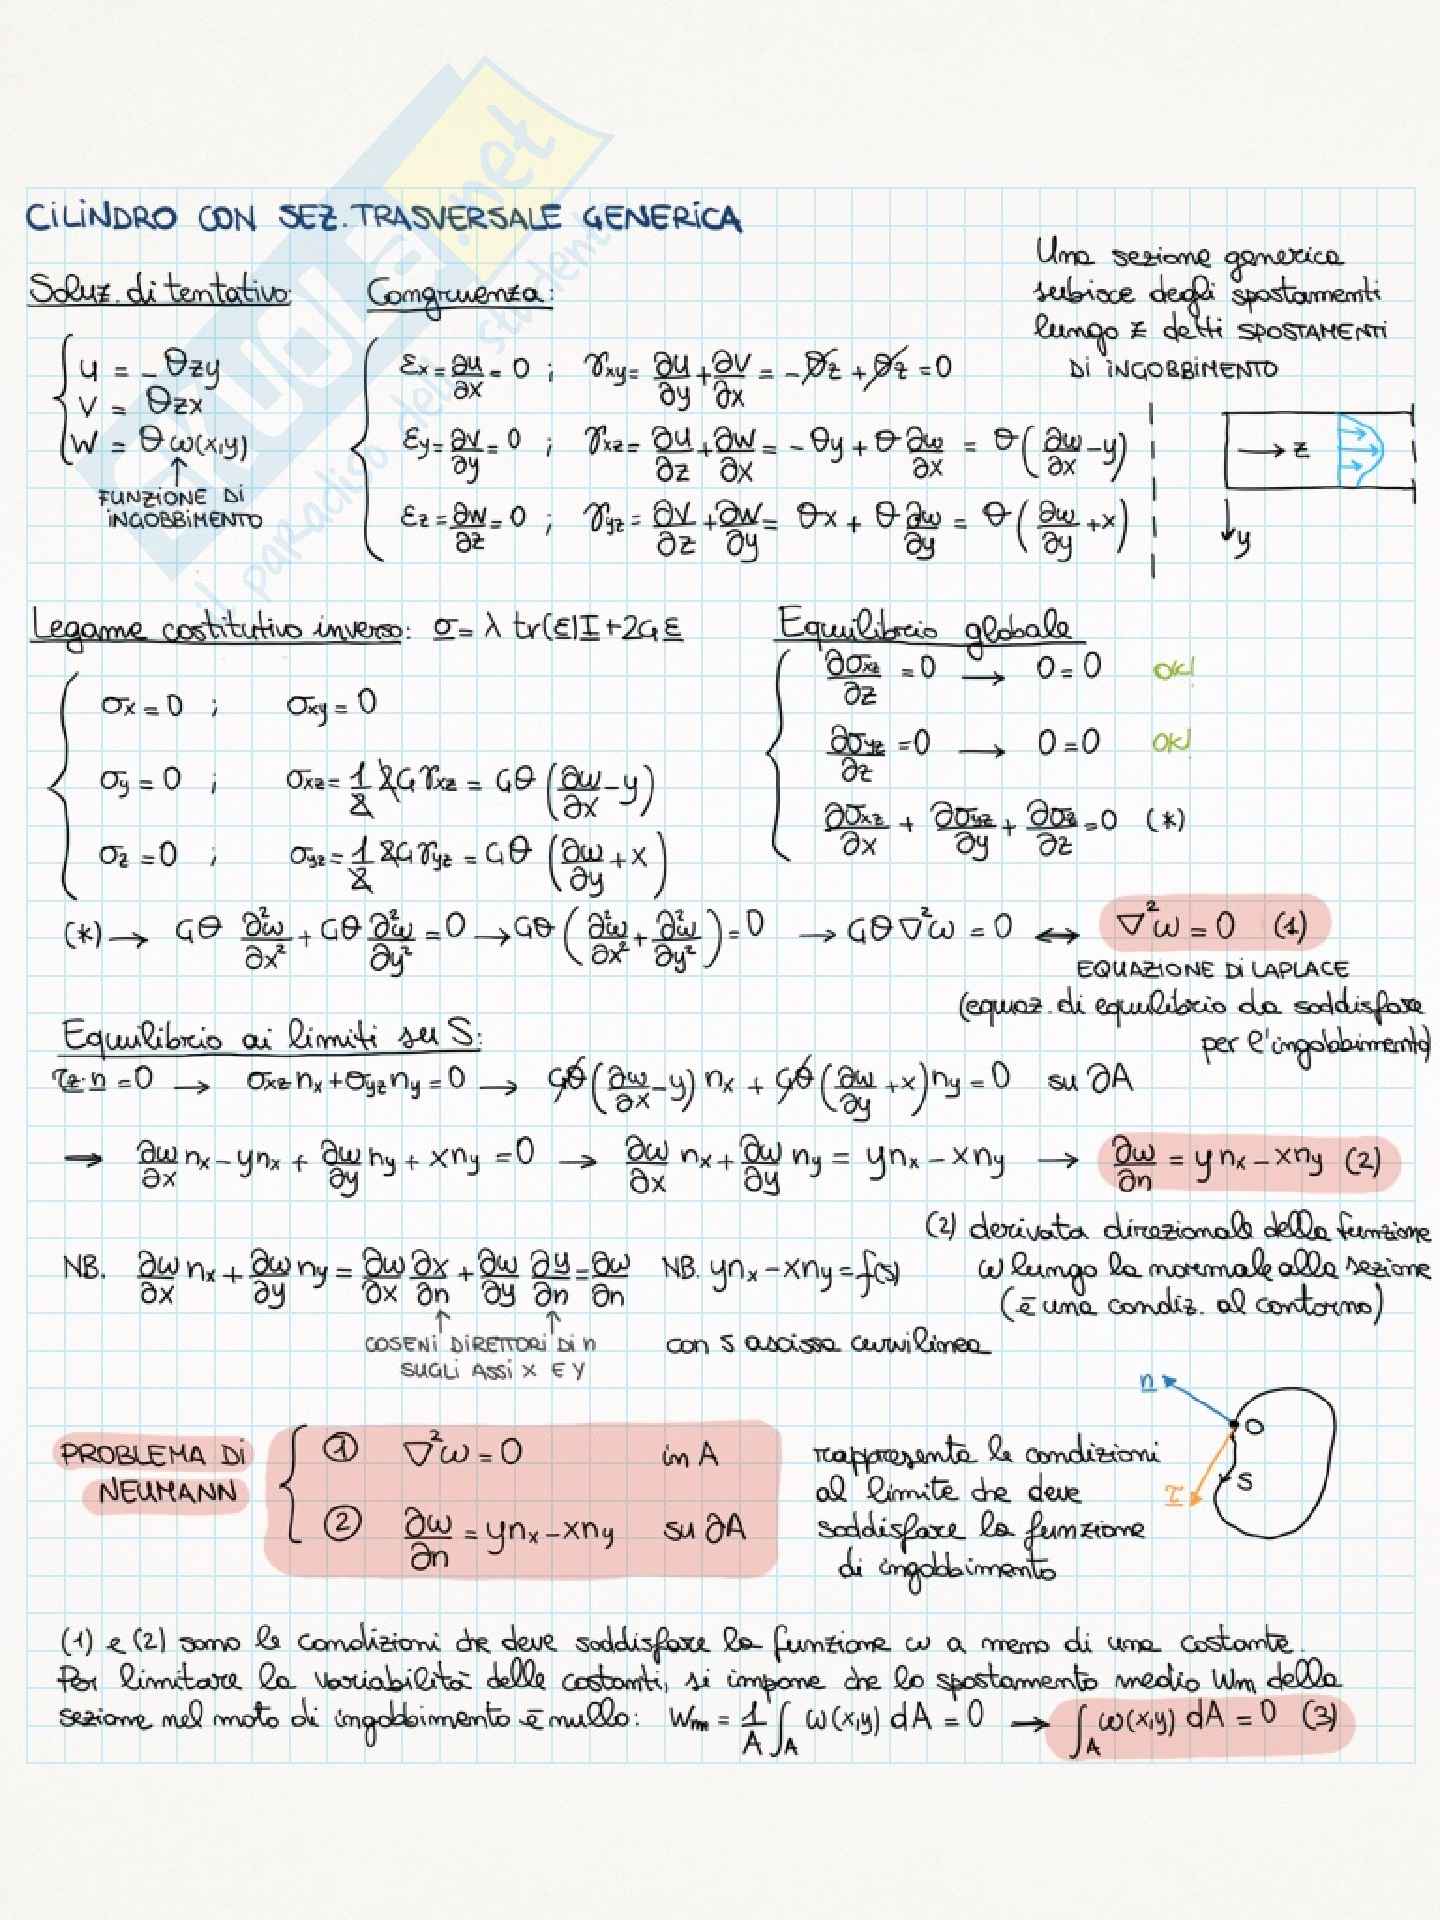 CILINDRO CON SEZ. TRASVERSALE GENERICA
Soluz. di tentativo:
u = -θzy
v = θzx
w = θω(x,y)
↑
FUNZIONE DI
INGOBBIMENTO
Congruenza:
εx = ∂u/∂x = 0 ; γxy = ∂u/∂y + ∂v/∂x = -θz + θz = 0
εy = ∂v/∂y = 0 ; γxz = ∂u/∂z + ∂w/∂x = -θy + θ ∂ω/∂x = θ(∂ω/∂x - y)
εz = ∂w/∂z = 0 ; γyz = ∂v/∂z + ∂w/∂y = θx + θ ∂ω/∂y = θ(∂ω/∂y + x)
Una sezione generica
subisce degli spostamenti
lungo z detti SPOSTAMENTI
DI INGOBBIMENTO
→ z
y
Legame costitutivo inverso: σ = λ tr(ε)I + 2Gε
σx = 0 ; σxy = 0
σy = 0 ; σxz = 1/2 2G γxz = Gθ (∂ω/∂x - y)
σz = 0 ; σyz = 1/2 2G γyz = Gθ (∂ω/∂y + x)
Equilibrio globale
∂σxz/∂z = 0 → 0 = 0 OK!
∂σyz/∂z = 0 → 0 = 0 OK!
∂σxz/∂x + ∂σyz/∂y + ∂σz/∂z = 0 (*)
(*) → Gθ ∂²ω/∂x² + Gθ ∂²ω/∂y² = 0 → Gθ (∂²ω/∂x² + ∂²ω/∂y²) = 0 → Gθ ∇²ω = 0 ↔ ∇²ω = 0 (1)
EQUAZIONE DI LAPLACE
(equaz. di equilibrio da soddisfare
per l'ingobbimento)
Equilibrio ai limiti su S:
τz · n = 0 → σxz nx + σyz ny = 0 → Gθ(∂ω/∂x - y) nx + Gθ(∂ω/∂y + x) ny = 0 su ∂A
→ ∂ω/∂x nx - ynx + ∂ω/∂y ny + xny = 0 → ∂ω/∂x nx + ∂ω/∂y ny = ynx - xny → ∂ω/∂n = ynx - xny (2)
(2) derivata direzionale della funzione
ω lungo la normale alla sezione
(è una condiz. al contorno)
NB. ∂ω/∂x nx + ∂ω/∂y ny = ∂ω/∂x ∂x/∂n + ∂ω/∂y ∂y/∂n = ∂ω/∂n
↑ ↑
COSENI DIRETTORI DI n
SUGLI ASSI X E Y
NB. ynx - xny = f(s)
con s ascissa curvilinea
n
O
τ
S
PROBLEMA DI
NEUMANN
① ∇²ω = 0 in A
② ∂ω/∂n = ynx - xny su ∂A
rappresenta le condizioni
al limite che deve
soddisfare la funzione
di ingobbimento
(1) e (2) sono le condizioni che deve soddisfare la funzione ω a meno di una costante.
Per limitare la variabilità delle costanti, si impone che lo spostamento medio Wm della
sezione nel moto di ingobbimento è nullo: Wm = 1/A ∫A ω(x,y) dA = 0 → ∫A ω(x,y) dA = 0 (3)
skuola.net
il paradiso dello studente